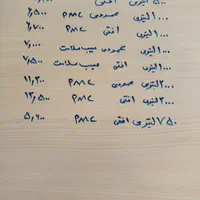 ۵۰۰ لیتری افقی
۱۰۰۰ لیتری عمودی PMC ۶٫۵۰۰
۱۰۰۰ لیتری افقی PMC ۶٫۷۰۰
۱۰۰۰ لیتری عمودی طبیب سلامت ۷٫۰۰۰
۱۰۰۰ لیتری افقی طبیب سلامت ۷٫۵۰۰
۲۰۰۰ لیتری عمودی PMC ۱۱٫۳۰۰
۲۰۰۰ لیتری افقی PMC ۱۲٫۵۰۰
۷۵۰ لیتری افقی PMC ۵٫۶۰۰